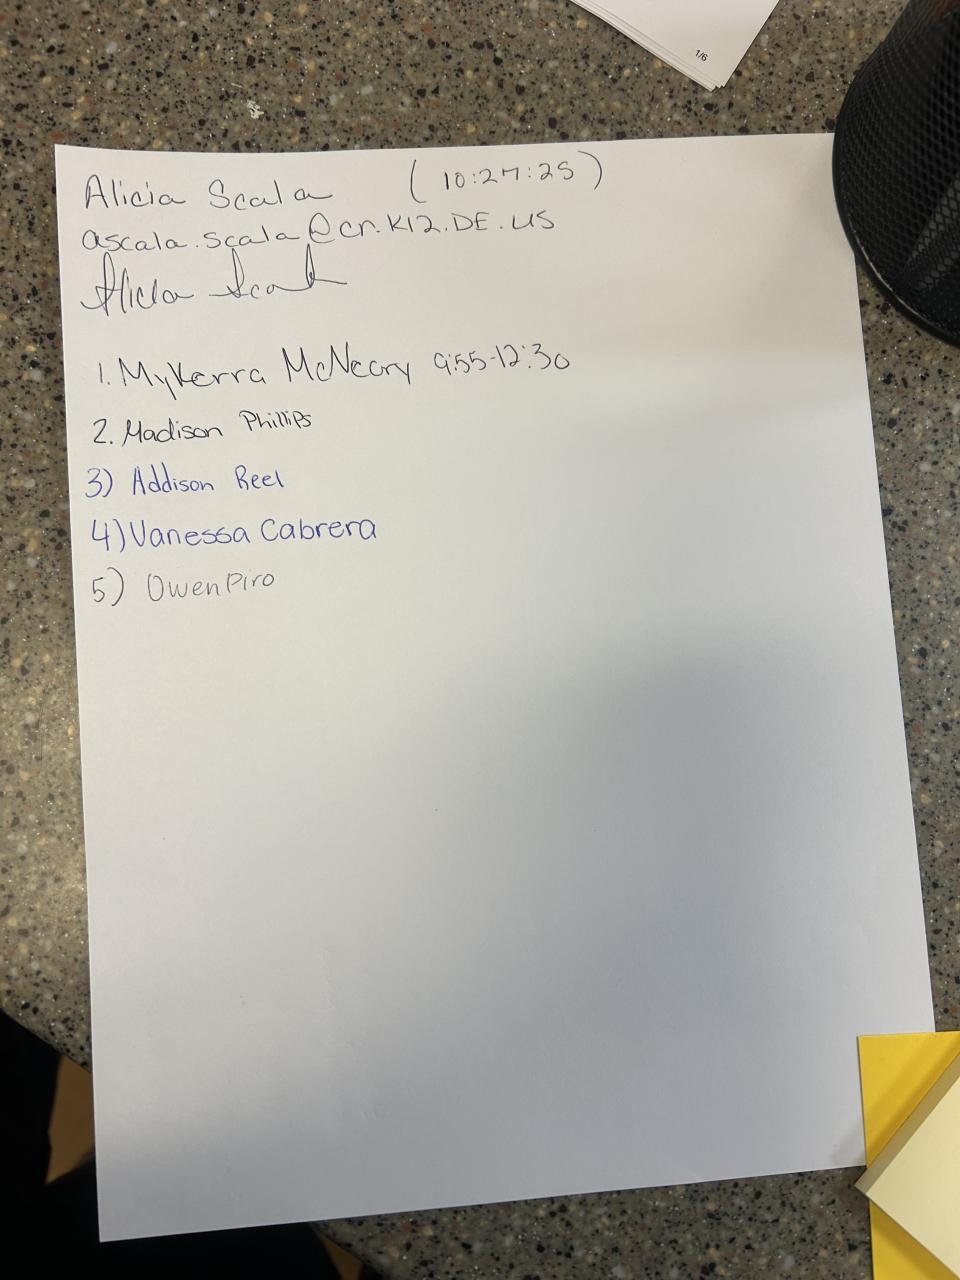 1/6
Alicia Scala (10:27:25)
ascala.scala@cr.K12.DE.US
Alicia Scala
1. Mykerra McNeary 9:55-12:30
2. Madison Phillips
3) Addison Reel
4) Vanessa Cabrera
5) Owen Piro